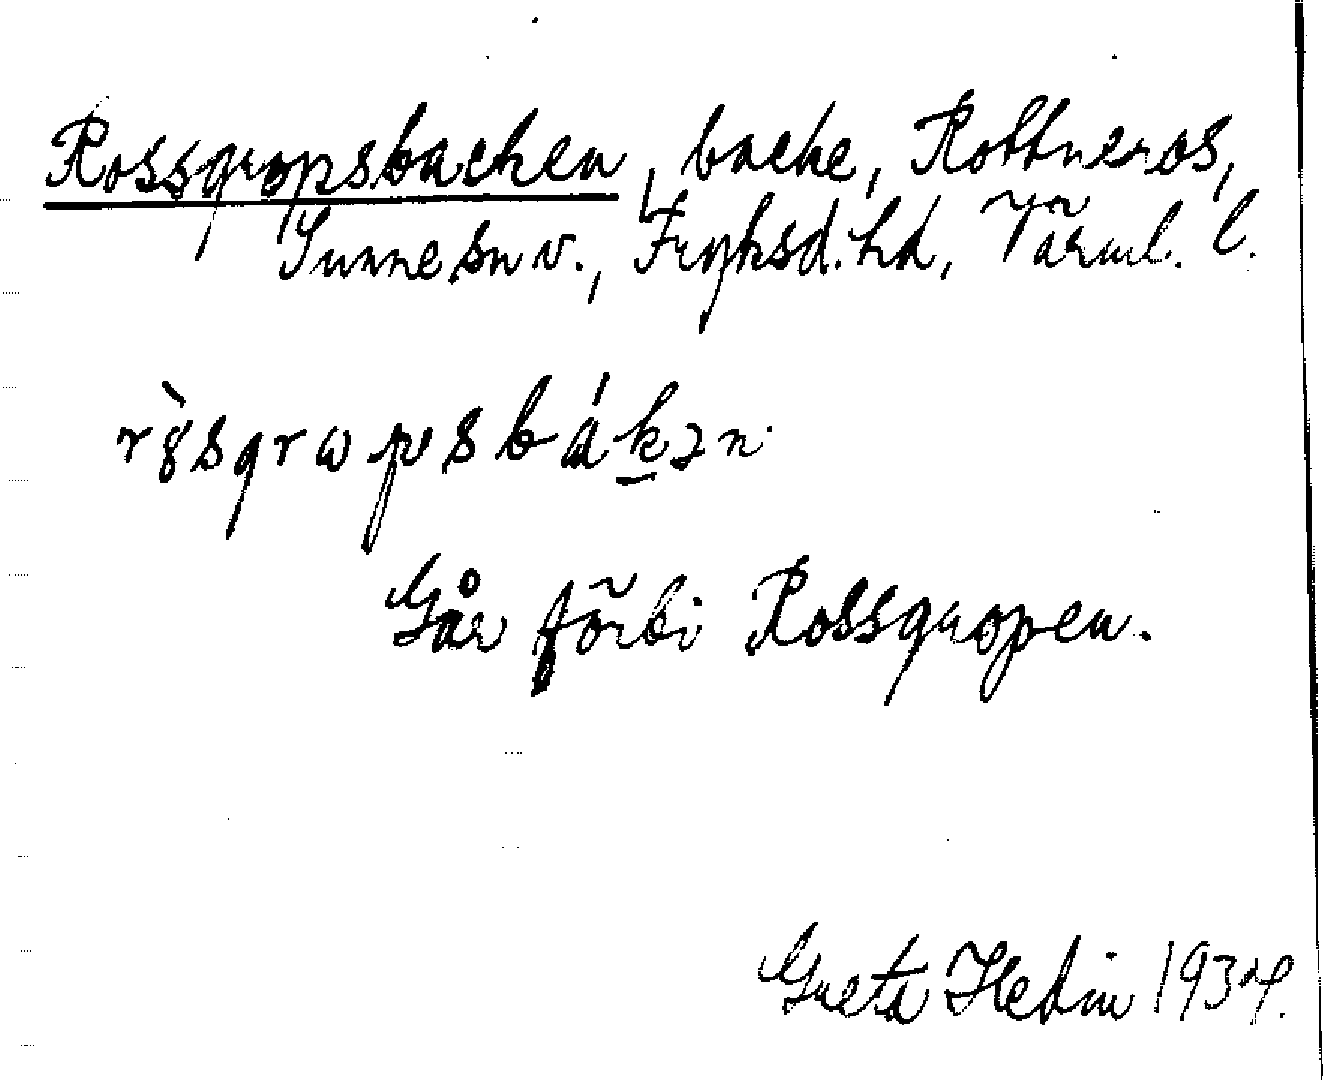 Rossgropsbacken, backe, Rottneros,
Sunne sn v., Fryksd. hd, Värml. l.
rɞ̀sgrωpsbákən
Går förbi Rossgropen.
Greta Hedin 1934.